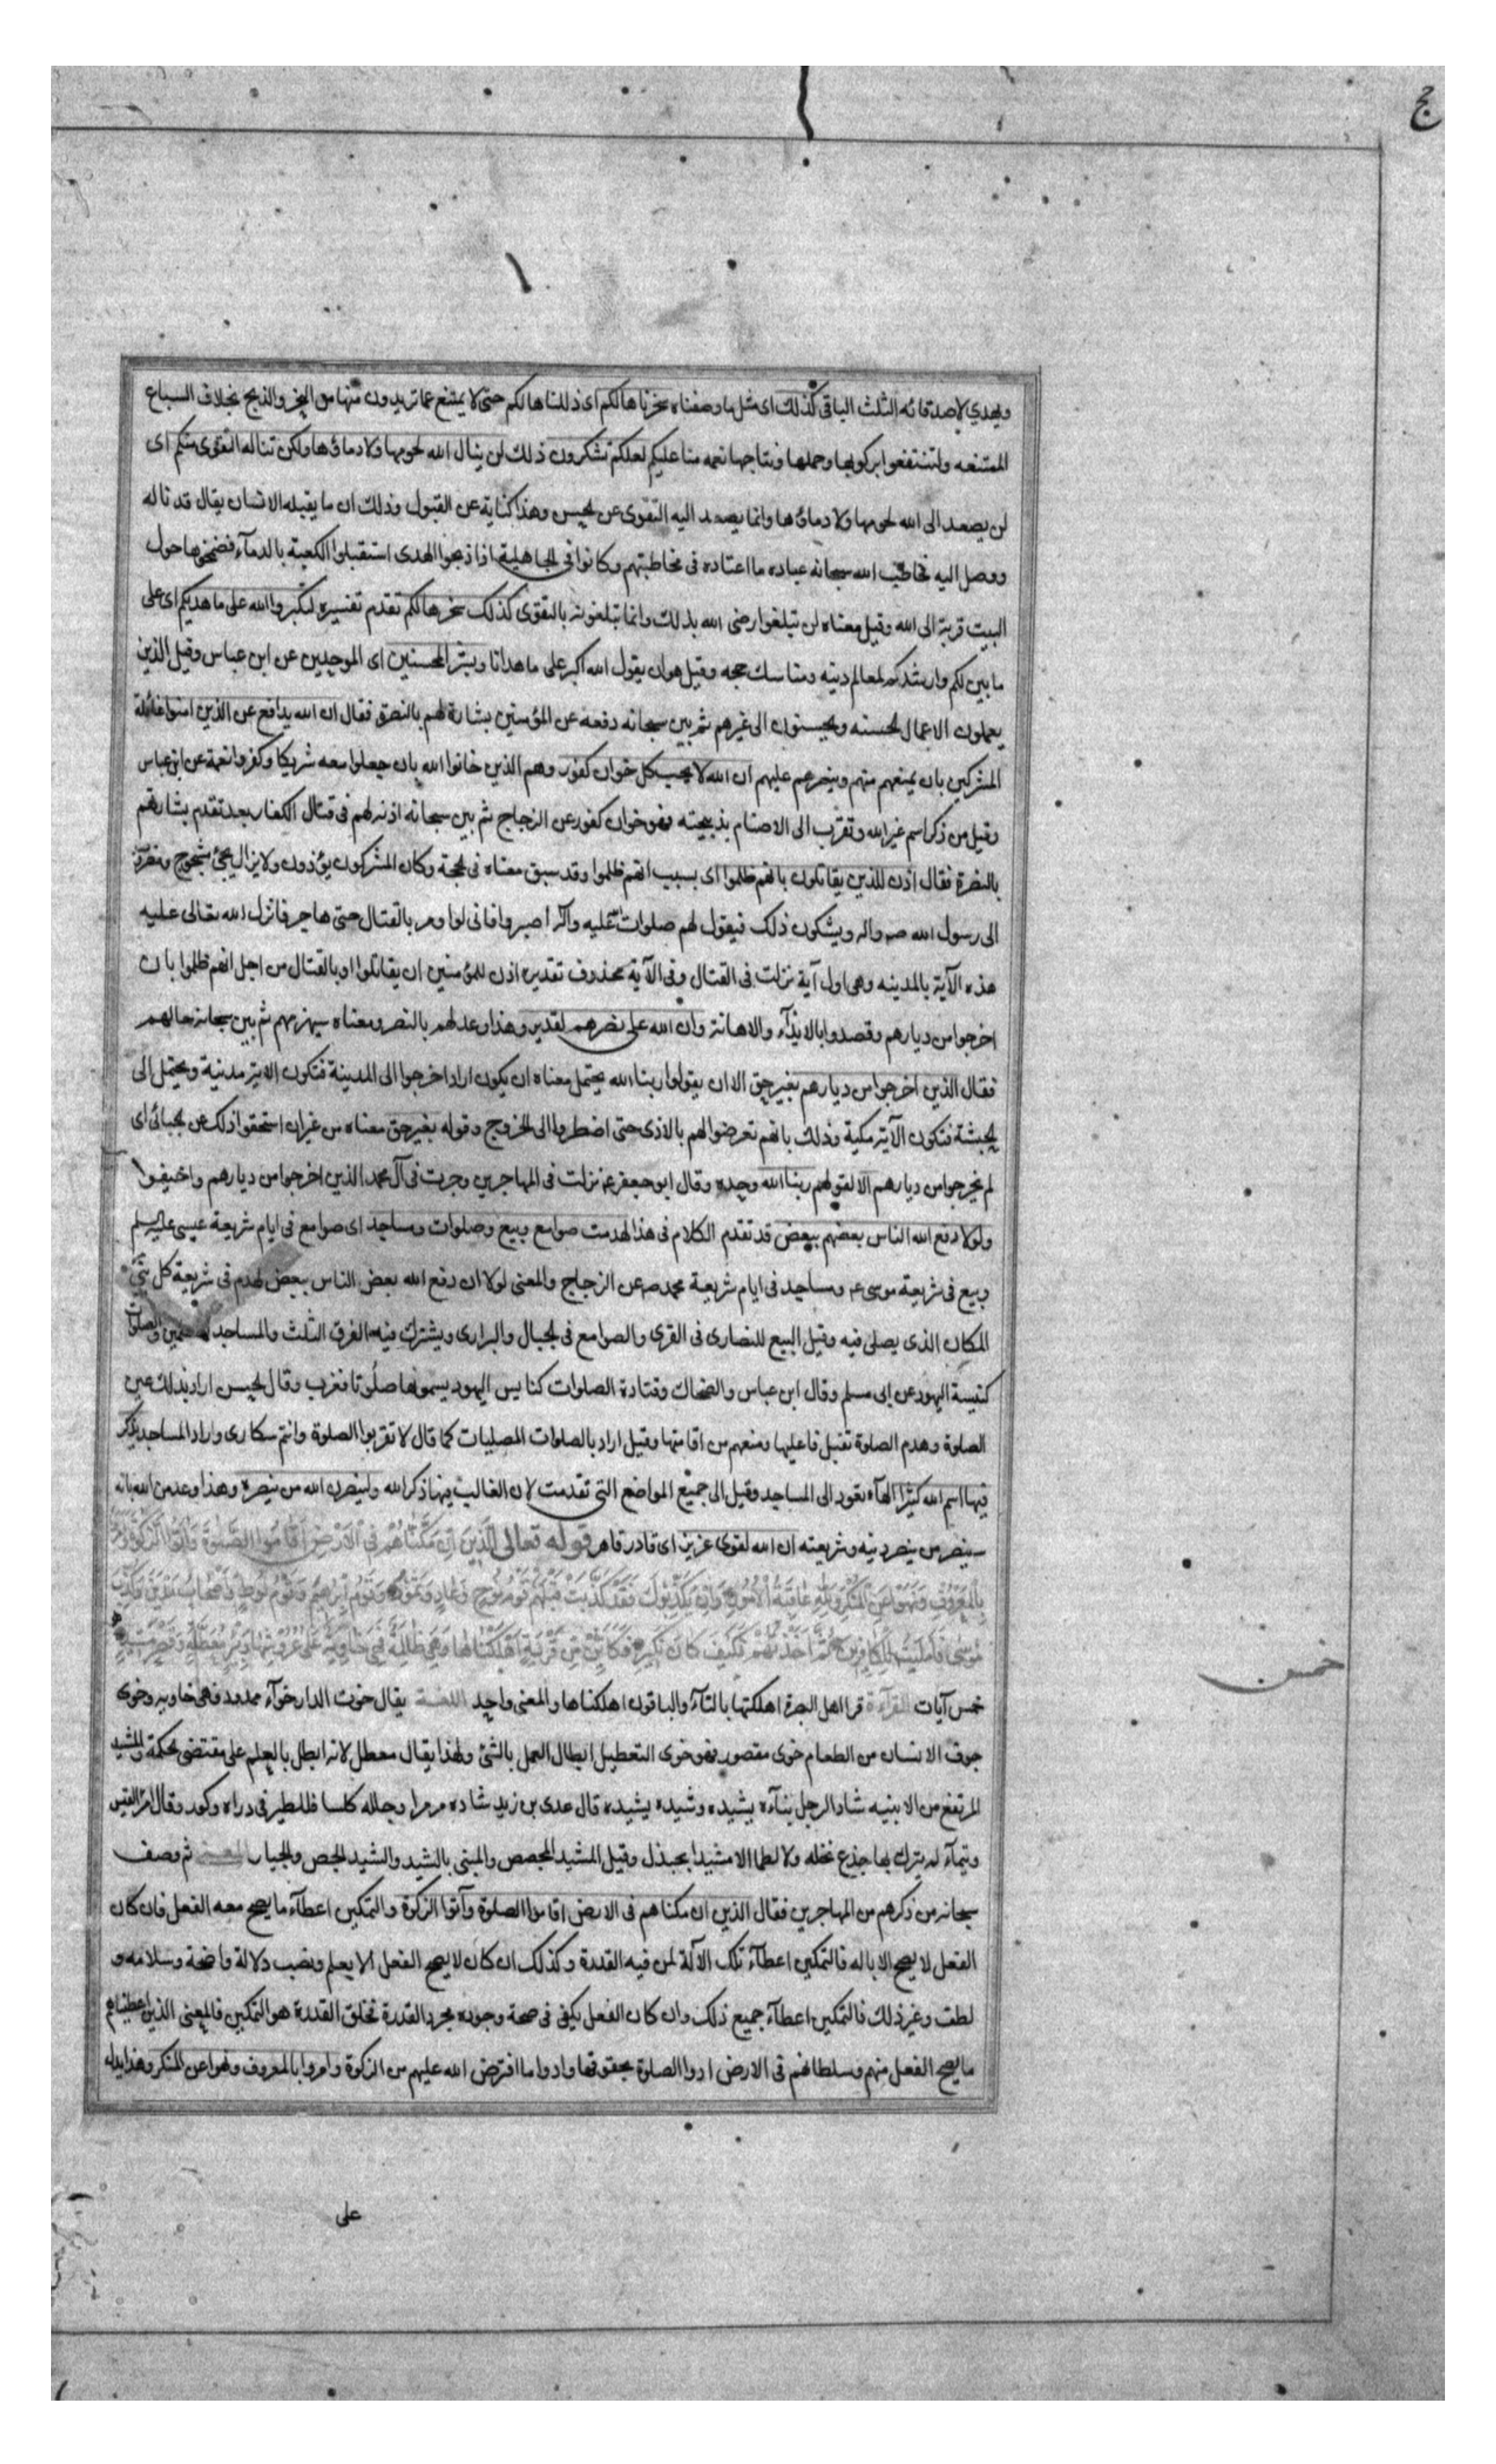 حج
ويهدي لاصدقائه الثلث الباقى كذلك اى مثل ما وصفناه سخرناها لكم اى ذللناها لكم حتى لا يمتنع عما تريدون منها من النحر والذبح بخلاف السباع
الممتنعه ولتنتفعوا بركوبها وحملها ونتاجها نعمه منا عليكم لعلكم تشكرون ذلك لن ينال الله لحومها ولا دماؤها ولكن تناله التقوى منكم اى
لن يصعد الى الله لحومها ولا دماؤها وانما يصعد اليه التقوى عن لحسن وهذا كناية عن القبول وذلك ان ما يقبله الانسان يقال قد ناله
ووصل اليه فخاطب الله سبحانه عباده ما اعتاده فى مخاطبتهم وكانوا فى الجاهلية اذا ذبحوا الهدى استقبلوا الكعبة بالدمآء فنضحوها حول
البيت قربة الى الله وقيل معناه لن تبلغوا رضى الله بذلك وانما تبلغونه بالتقوى كذلك سخرها لكم تقدم تفسيره لتكبروا الله على ما هديكم اى على
ما بين لكم وارشدكم لمعالم دينه ومناسك حجه وقيل هو ان يقول الله اكبر على ما هدانا وبشر المحسنين اى الموحدين عن ابن عباس وقيل الذين
يعملون الاعمال لحسنه ويحسنون الى غيرهم ثم بين سبحانه دفعه عن المؤمنين بشارة لهم بالنصر فقال ان الله يدافع عن الذين امنوا غائلة
المشركين بان يمنعهم منهم وينصرهم عليهم ان الله لا يحب كل خوان كفور وهم الذين خانوا الله بان جعلوا معه شريكا وكفروا نعمه عن ابن عباس
وقيل من ذكر اسم غير الله وتقرب الى الاصنام بذبيحته فهو خوان كفور عن الزجاج ثم بين سبحانه اذنه لهم فى قتال الكفار بعد تقدم بشارتهم
بالنصرة فقال اذن للذين يقاتلون بانهم ظلموا اى بسبب انهم ظلموا وقد سبق معناه فى لحجة وكان المشركون يؤذون ولا يزال يجئ مشجوج ومضروب
الى رسول الله صم واله ويشكون ذلك فيقول لهم صلوات الله عليه وآله اصبروا فانى لم اومر بالقتال حتى هاجر فانزل الله تعالى عليه
هذه الآية بالمدينه وهى اول آية نزلت فى القتال وفى الآية محذوف تقديره اذن للمؤمنين ان يقاتلوا او بالقتال من اجل انهم ظلموا بان
اخرجوا من ديارهم وقصدوا بالايذآء والاهانة وان الله على نصرهم لقدير وهذا وعد لهم بالنصر ومعناه سينصرهم ثم بين سبحانه حالهم
فقال الذين اخرجوا من ديارهم بغير حق الا ان يقولوا ربنا الله يحتمل معناه ان يكون اراد اخرجوا الى المدينة فتكون الاية مدنية ويحتمل الى
لحبشة فتكون الآية مكية وذلك بانهم تعرضوا لهم بالاذى حتى اضطروا الى الخروج وقوله بغير حق معناه من غير ان استحقوا ذلك عن لجبائى اى
لم يخرجوا من ديارهم الا لقولهم ربنا الله وحده وقال ابو جعفر ع نزلت فى المهاجرين وجرت فى آل محمد الذين اخرجوا من ديارهم واخيفوا
ولولا دفع الله الناس بعضهم ببعض قد تقدم الكلام فى هذا لهدمت صوامع وبيع وصلوات ومساجد اى صوامع فى ايام شريعة عيسى عليه السلم
وبيع فى شريعة موسى ع ومساجد فى ايام شريعة محمد صم عن الزجاج والمعنى لولا ان دفع الله بعض الناس ببعض لهدم فى شريعة كل نبى
المكان الذى يصلى فيه وقيل البيع للنصارى فى القرى والصوامع فى لجبال والبرارى ويشترك فيها الفرق الثلث والمساجد للمسلمين والصلوات
كنيسة اليهود عن ابى مسلم وقال ابن عباس والضحاك وقتادة الصلوات كنايس اليهود يسمونها صلوتا فعرب وقال لحسن اراد بذلك عين
الصلوة وهدم الصلوة تقتل فاعليها ومنعهم من اقامتها وقيل اراد بالصلوات المصليات كما قال لا تقربوا الصلوة وانتم سكارى واراد المساجد يذكر
فيها اسم الله كثيرا الهآء تعود الى المساجد وقيل الى جميع المواضع التى تقدمت لان الغالب فيها ذكر الله ولينصرن الله من ينصره وهذا وعد من الله بانه
سينصر من ينصر دينه وشريعته ان الله لقوى عزيز اى قادر قاهر قوله تعالى الَّذِينَ اِنْ مَكَّنَّاهُمْ فِى الْاَرْضِ اَقَامُوا الصَّلوةَ وَآتَوُا الزَّكوةَ وَاَمَرُوا
بِالْمَعْرُوفِ وَنَهَوْا عَنِ الْمُنْكَرِ وَلِلّهِ عَاقِبَةُ الْاُمُورِ وَاِنْ يُكَذِّبُوكَ فَقَدْ كَذَّبَتْ قَبْلَهُمْ قَوْمُ نُوحٍ وَعَادٌ وَثَمُودُ وَقَوْمُ اِبْرهِيمَ وَقَوْمُ لُوطٍ وَاَصْحَابُ مَدْيَنَ وَكُذِّبَ
مُوسى فَاَمْلَيْتُ لِلْكَافِرِينَ ثُمَّ اَخَذْتُهُمْ فَكَيْفَ كَانَ نَكِيرِ فَكَاَيِّنْ مِنْ قَرْيَةٍ اَهْلَكْنَاهَا وَهِىَ ظَالِمَةٌ فَهِىَ خَاوِيَةٌ عَلى عُرُوشِهَا وَبِئْرٍ مُعَطَّلَةٍ وَقَصْرٍ مَشِيدٍ
خمس
خمس آيات القرآءة قرا اهل البصرة اهلكتها بالتآء والباقون اهلكناها والمعنى واحد اللغة يقال خوت الدار خوآء ممدود فهى خاوية وخوى
جوف الانسان من الطعام خوى مقصور فهو خوى التعطيل ابطال العمل بالشئ ولهذا يقال معطل لانه ابطل بالعلم على مقتضى لحكمة والمشيد
المرتفع من الابنيه شاد الرجل بنآءه يشيده وشيده يشيده قال عدى بن زيد شاده مرمرا وجلله كلسا فللطير فى دراه وكور وقال امرؤ القيس
وتيمآء لم يترك بها جذع نخله ولا اطما الا مشيدا بجندل وقيل المشيد المجصص والمبنى بالشيد والشيد الجص والجيار المعنى ثم وصف
سبحانه من ذكرهم من المهاجرين فقال الذين ان مكناهم فى الارض اقاموا الصلوة وآتوا الزكوة والتمكين اعطآء ما يصح معه الفعل فان كان
الفعل لا يصح الا باله فالتمكين اعطآء تلك الآلة لمن فيه القدرة وكذلك ان كان لا يصح الفعل الا بعلم ونصب دلالة واضحة وسلامه و
لطف وغير ذلك فالتمكين اعطآء جميع ذلك وان كان الفعل يكفى فى صحة وجوده مجرد القدرة فخلق القدرة هو التمكين فالمعنى الذين اعطيناهم
ما يصح الفعل منهم وسلطانهم فى الارض ادوا الصلوة بحقوقها وادوا ما افترض الله عليهم من الزكوة وامروا بالمعروف ونهوا عن المنكر وهذا يدل
على